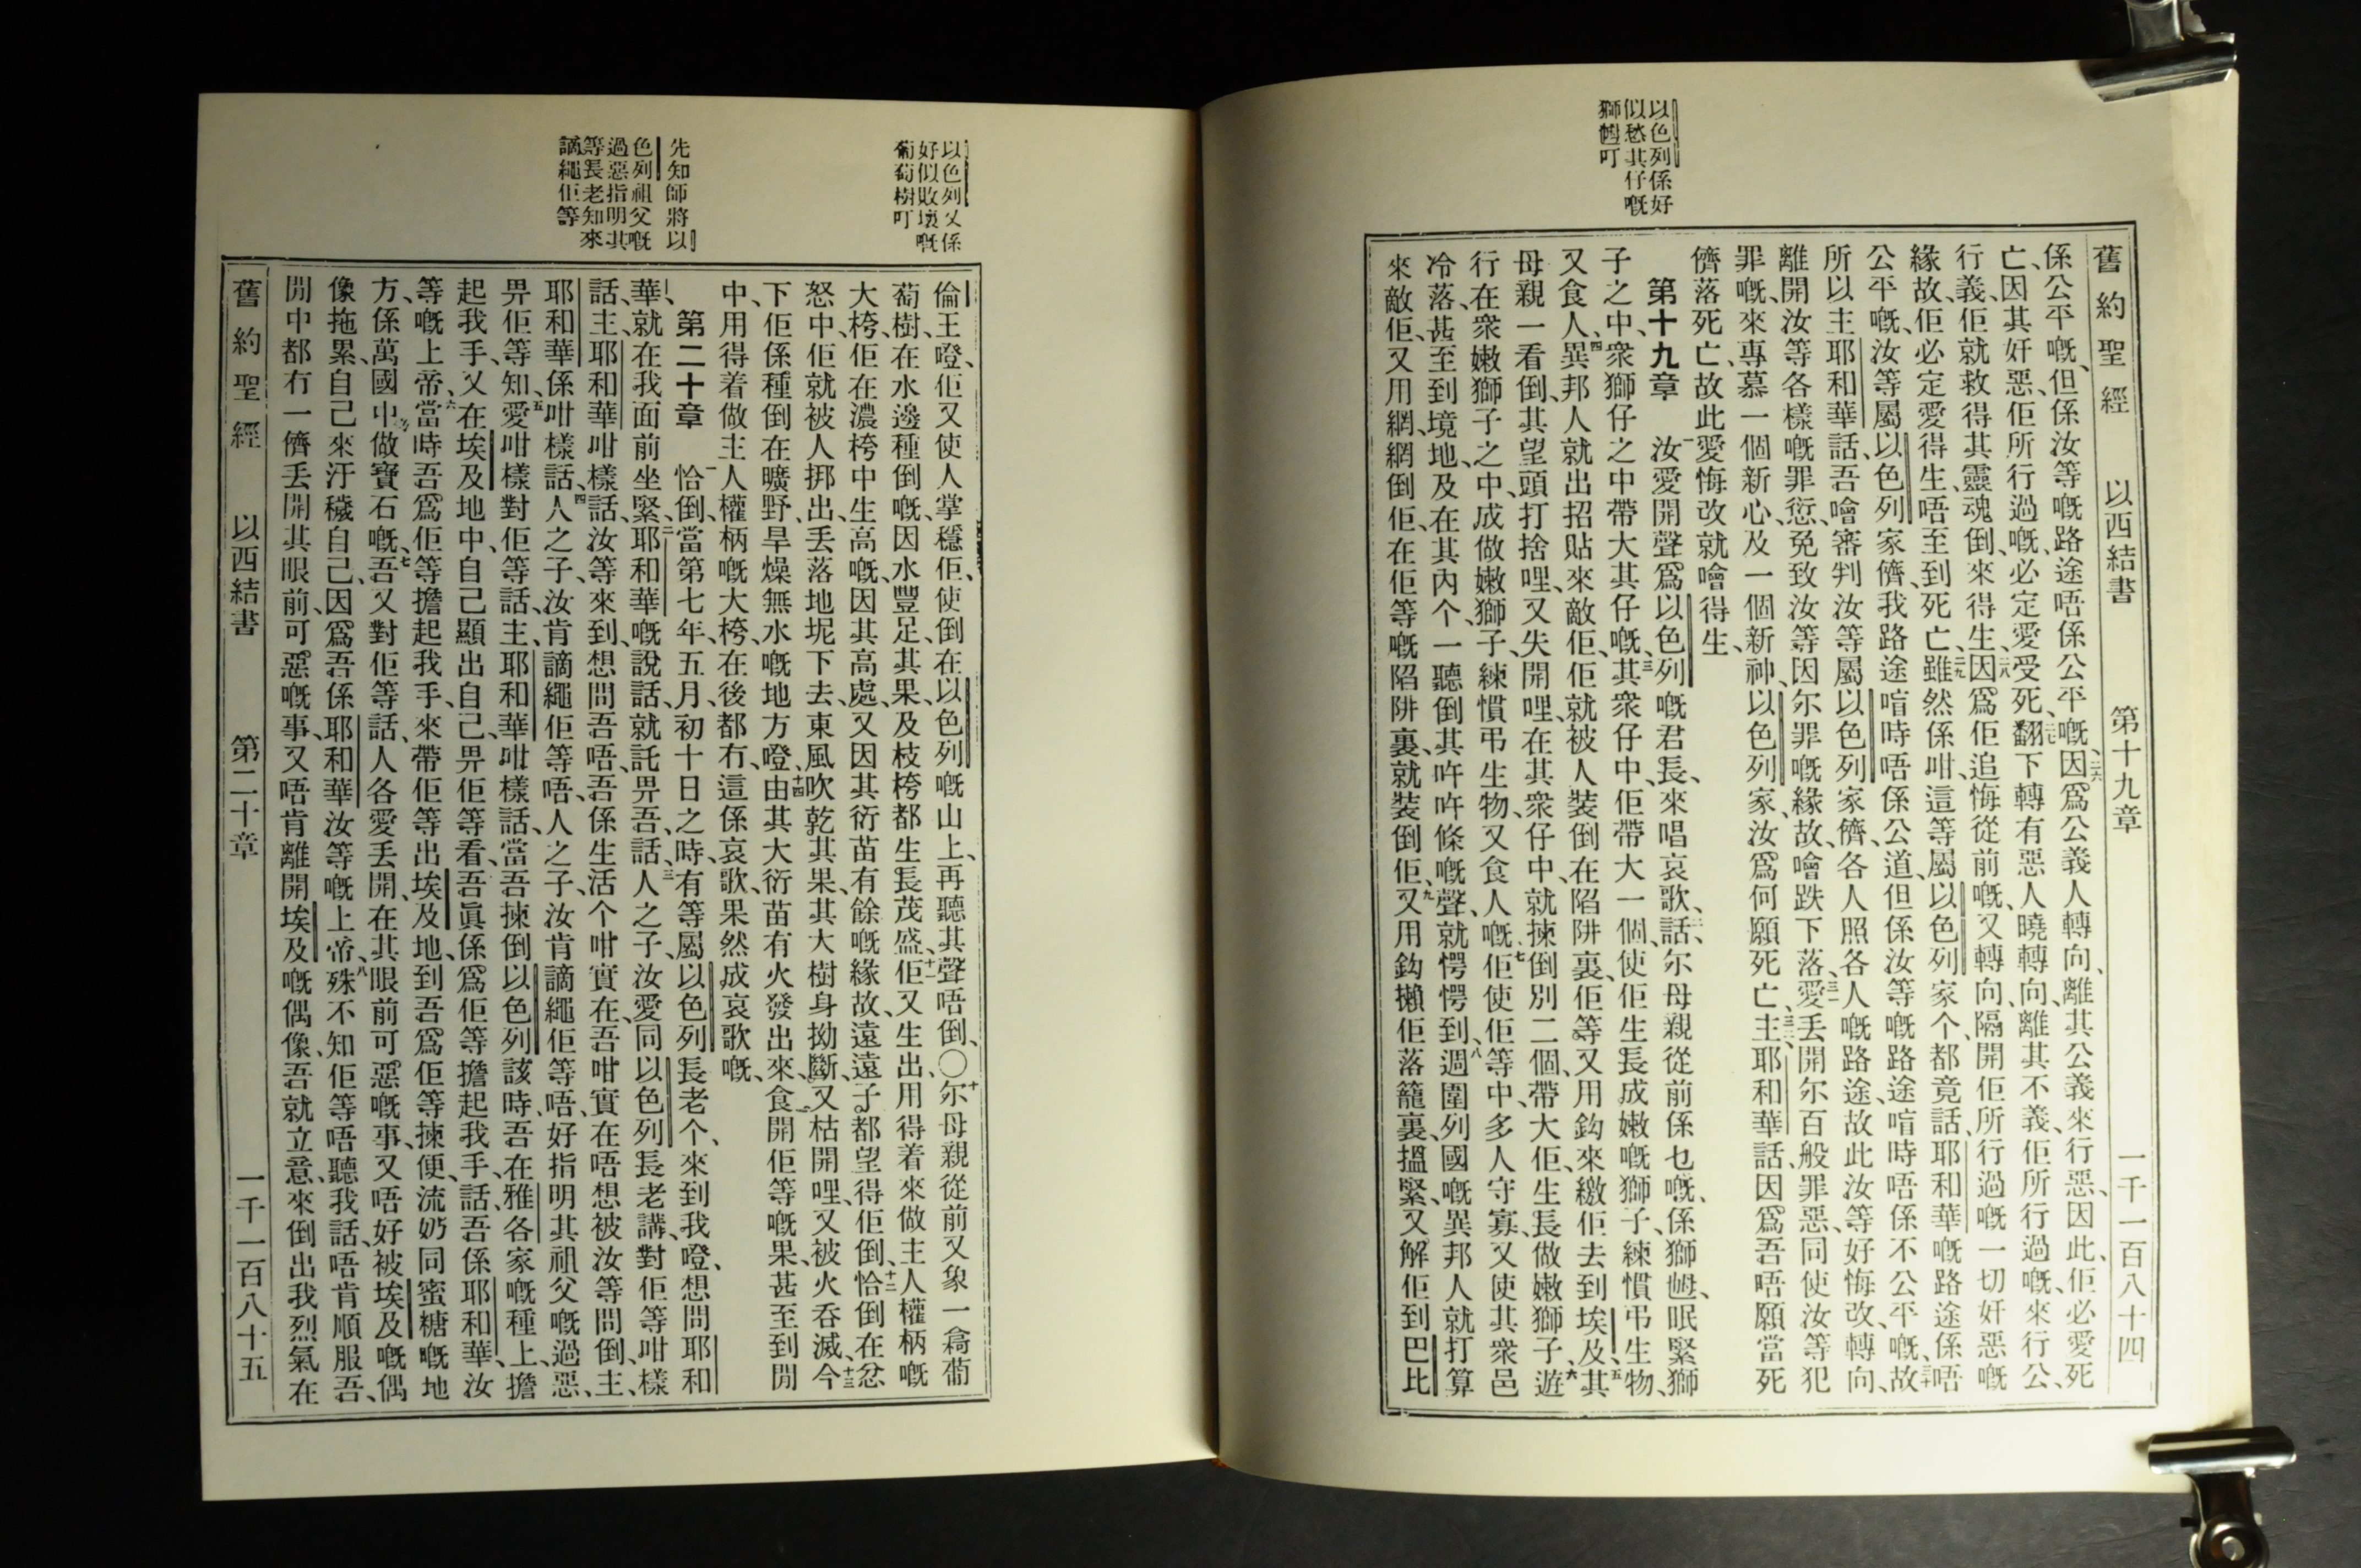 以色列係好
似愁其仔嘅
獅𡜵叮
舊約聖經 以西結書 第十九章 一千一百八十四
係公平嘅、但係汝等嘅路途唔係公平、嘅、二六因爲公義人轉向、離其公義來行惡、因此、佢必愛死
亡、因其奸惡、佢所行過嘅、必定愛受死、二七翻下轉有惡人曉轉向、離其不義、佢所行過嘅、來行公、
行義、佢就救得其靈魂倒、來得生、二八因爲佢追悔從前嘅、又轉向、隔開佢所行過嘅一切奸惡嘅
緣故、佢必定愛得生、唔至到死亡、二九雖然係咁、這等屬以色列家个、都竟話、耶和華嘅路途係唔
公平嘅、汝等屬以色列家儕、我路途喑時唔係公道、但係汝等嘅路途、喑時唔係不公平嘅、三十故
所以主耶和華話、吾噲審判汝等屬以色列家儕、各人照各人嘅路途、故此汝等好悔改、轉向、
離開汝等各樣嘅罪愆、免致汝等因尔罪嘅緣故、噲跌下落、三一愛丟開尔百般罪惡、同使汝等犯
罪嘅、來專慕一個新心、及一個新神、以色列家、汝爲何願死亡、三二主、耶和華話、因爲吾唔願當死
儕落死亡、故此愛悔改就噲得生、
第十九章 一汝愛開聲爲以色列嘅君長、來唱哀歌、二話、尔母親從前係乜嘅、係獅𡜵、眠緊獅
子之中、衆獅仔之中帶大其仔嘅、三其衆仔中、佢帶大一個、使佢生長成嫩嘅獅子、練慣弔生物、
又食人、四異邦人就出招貼來敵佢、佢就被人裝倒在陷阱裏、佢等又用鈎來繳佢去到埃及、五其
母親一看倒、其望頭打捨哩、又失開哩、在其衆仔中、就揀倒別二個、帶大佢、生長做嫩獅子、六遊
行在衆嫩獅子之中、成做嫩獅子、練慣弔生物、又食人嘅、七佢使佢等中、多人守寡、又使其衆邑
冷落、甚至到境地、及在其內个、一聽倒其吽吽條嘅聲、就愕愕到、八週圍列國嘅異邦人就打算
來敵佢、又用網、網倒佢、在佢等嘅陷阱裏、就裝倒佢、九又用鈎攋佢落籠裏、搵緊、又解佢到巴比
以色列又係
好似敗壞嘅
葡萄樹叮
先知師將以
色列祖父嘅
過惡指明其
等長老知來
謫繩佢等
倫王、嶝、佢又使人掌穩佢、使倒在以色列嘅山上、再聽其聲唔倒、〇十尔母親從前又象一樖葡
萄樹、在水邊種倒嘅、因水豐足、其果、及枝桍都生長茂盛、十一佢又生出用得着來做主人權柄嘅
大桍、佢在濃桍中生高嘅、因其高處、又因其衍苗有餘嘅緣故、遠遠子都望得佢倒、十二恰倒在忿
怒中、佢就被人挷出、丟落地坭下去、東風吹乾其果、其大樹身拗斷、又枯開哩、又被火呑滅、十三今
下佢係種倒在曠野、旱燥無水嘅地方嶝、十四由其大衍苗有火發出來、食開佢等嘅果、甚至到閒
中、用得着做主人權柄嘅大桍、在後都冇、這係哀歌、果然成哀歌嘅、
第二十章 一恰倒、當第七年、五月、初十日之時、有等屬以色列長老个、來到我嶝、想問耶和
華、就在我面前坐緊、二耶和華嘅說話、就託畀吾、話、三人之子、汝愛同以色列長老講、對佢等咁樣
話、主、耶和華咁樣話、汝等來到、想問吾唔、吾係生活个咁實在、吾咁實在唔想被汝等問倒、主、
耶和華係咁樣話、四人之子、汝肯謫繩佢等唔、人之子、汝肯謫繩佢等唔、好指明其祖父嘅過惡、
畀佢等知、五愛咁樣對佢等話、主、耶和華咁樣話、當吾揀倒以色列該時、吾在雅各家嘅種上、擔
起我手、又在埃及地中、自己顯出自己、畀佢等看、吾眞係爲佢等擔起我手、話、吾係耶和華、汝
等嘅上帝、六當時吾爲佢等擔起我手、來帶佢等出埃及地、到吾爲佢等揀便、流奶同蜜糖嘅地
方、係萬國中、做寶石嘅、七吾又對佢等話、人各愛丟開、在其眼前可惡嘅事、又唔好被埃及嘅偶
像拖累、自己來汙穢自己、因爲吾係耶和華汝等嘅上帝、八殊不知佢等唔聽我話、唔肯順服吾、
閒中都冇一儕丟開其眼前、可惡嘅事、又唔肯離開埃及嘅偶像、吾就立意、來倒出我烈氣在
舊約聖經 以西結書 第二十章 一千一百八十五